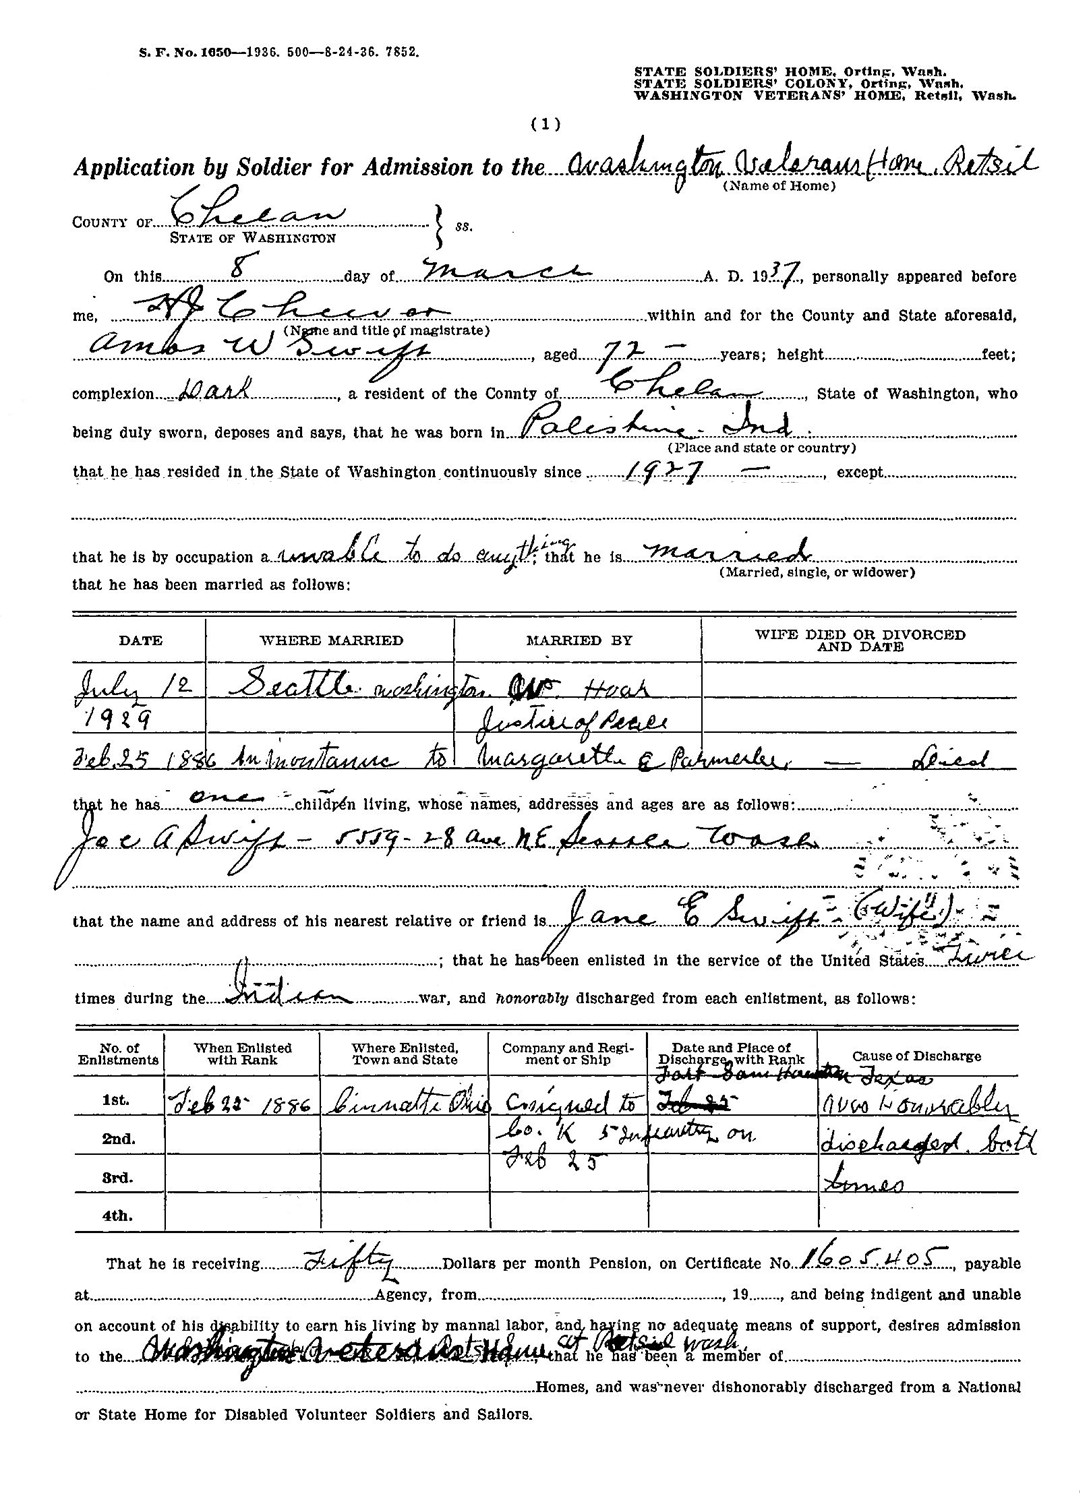 S. F. No. 1650—1936. 500—8-24-36. 7852.
STATE SOLDIERS' HOME, Orting, Wash.
STATE SOLDIERS' COLONY, Orting, Wash.
WASHINGTON VETERANS' HOME, Retsil, Wash.
(1)
Application by Soldier for Admission to the Washington Veterans Home, Retsil
(Name of Home)
COUNTY OF Chelan } ss.
STATE OF WASHINGTON
On this 8 day of March A. D. 1937, personally appeared before
me, within and for the County and State aforesaid,
(Name and title of magistrate)
Amos W Swift, aged 72 — years; height feet;
complexion Dark, a resident of the County of Chelan, State of Washington, who
being duly sworn, deposes and says, that he was born in Palestine - Ind.
(Place and state or country)
that he has resided in the State of Washington continuously since 1927 —, except
that he is by occupation a unable to do anything; that he is married
(Married, single, or widower)
that he has been married as follows:
DATE WHERE MARRIED MARRIED BY WIFE DIED OR DIVORCED AND DATE
July 12 Seattle Washington Hoar
1929 Justice of Peace
Feb 25 1886 In Montana to Margareth E — Died
that he has one children living, whose names, addresses and ages are as follows:
Joe A Swift - 5559 - 28 ave N.E Wash
that the name and address of his nearest relative or friend is Jane E Swift - (Wife)
; that he has been enlisted in the service of the United States Twice
times during the Indian war, and honorably discharged from each enlistment, as follows:
No. of Enlistments When Enlisted with Rank Where Enlisted, Town and State Company and Regiment or Ship Date and Place of Discharge, with Rank Cause of Discharge
Fort Sam Houston Texas
1st. Feb 25 1886 Ohio to Feb 25 Honorably
2nd. Co. K 5 Infantry on discharged both
Feb 25
3rd. times
4th.
That he is receiving Fifty Dollars per month Pension, on Certificate No. 1605.405, payable
at Agency, from , 19 , and being indigent and unable
on account of his disability to earn his living by mannal labor, and having no adequate means of support, desires admission
to the Washington Veterans Home at Retsil wash, that he has been a member of
Homes, and was never dishonorably discharged from a National
or State Home for Disabled Volunteer Soldiers and Sailors.